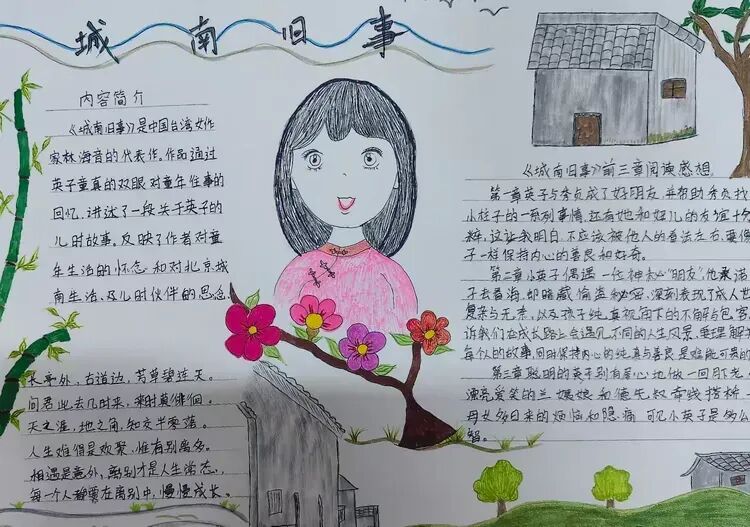 城南旧事
内容简介
《城南旧事》是中国台湾女作
家林海音的代表作。作品通过
英子童真的双眼对童年往事的
回忆,讲述了一段关于英子的
儿时故事,反映了作者对童
年生活的怀念和对北京城
南生活、及儿时伙伴的思念。
长亭外,古道边,芳草碧连天。
问君此去几时来,来时莫徘徊。
天之涯,地之角,知交半零落。
人生难得是欢聚,惟有别离多。
相遇是意外,离别才是人生常态,
每一个人都要在离别中,慢慢成长。
《城南旧事》前三章阅读感想
第一章英子与秀贞成了好朋友,并帮助秀贞找
小桂子的一系列事情,还有她和妞儿的友谊十分
粹,这让我明白,不应该被他人的看法左右,要像
子一样保持内心的善良和好奇。
第二章小英子偶遇一位神秘"朋友",他承诺
子去看海,却暗藏偷盗秘密,深刻表现了成人世
复杂与无奈,以及孩子纯真视角下的不解与包容
诉我们在成长路上会遇见不同的人生风景,要理解
每个人的故事,同时保持内心的纯真与善良是难能可贵的
第三章聪明的英子别有用心地做一回
漂亮爱笑的兰姨娘和德先叔牵线搭桥
母女多日来的烦恼和隐痛,可见小英子是多么